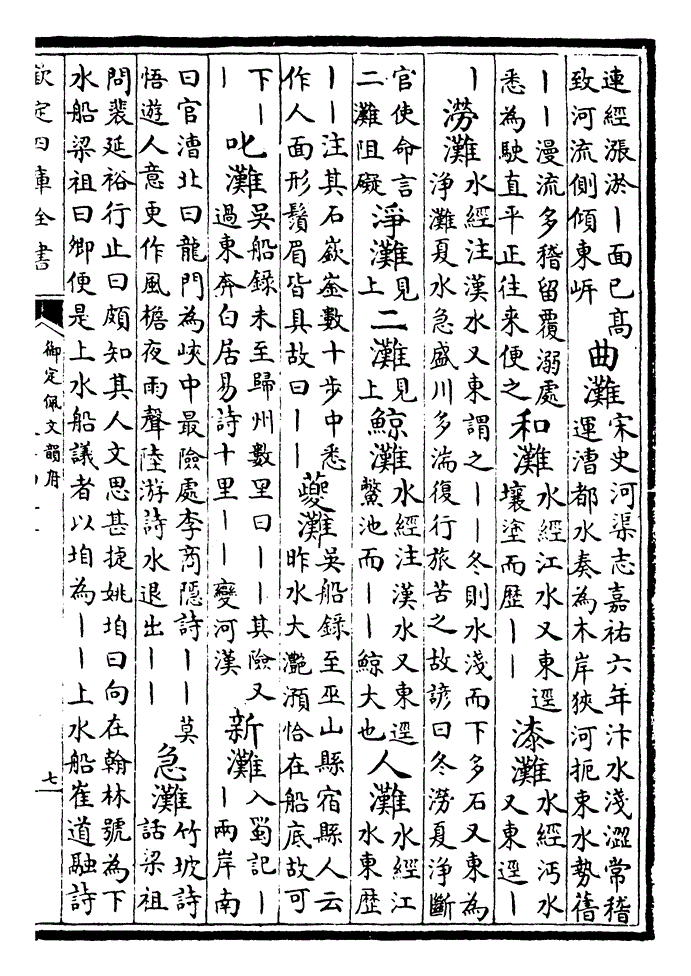 連經漲淤｜面已高
致河流側傾東㟁
曲灘
宋史河渠志嘉祐六年汴水淺澀常稽
運漕都水奏為木岸狹河扼束水勢舊
｜｜漫流多稽留覆溺處
悉為駛直平正往來便之
和灘
水經江水又東逕
壤塗而歴｜｜
漆灘
水經沔水
又東逕｜
｜
澇灘
水經注漢水又東謂之｜｜冬則水淺而下多石又東為
淨灘夏水急盛川多湍復行旅苦之故諺曰冬澇夏淨斷
官使命言
二灘阻礙
淨灘
見
上
二灘
見
上
鯨灘
水經注漢水又東逕
鱉池而｜｜鯨大也
人灘
水經江
水東歴
｜｜注其石嶔崟數十步中悉
作人面形鬚眉皆具故曰｜｜
夔灘
吳船録至巫山縣宿縣人云
昨水大灧澦恰在船底故可
下｜
｜
叱灘
吳船録未至歸州數里曰｜｜其險又
過東奔白居易詩十里｜｜變河漢
新灘
入蜀記｜
｜兩岸南
曰官漕北曰龍門為峽中最險處李商隱詩｜｜莫
悟遊人意更作風檐夜雨聲陸游詩水退出｜｜
急灘
竹坡詩
話梁祖
問裴延裕行止曰頗知其人文思甚捷姚垍曰向在翰林號為下
水船梁祖曰卿便是上水船議者以垍為｜｜上水船崔道融詩
欽定四庫全書
御定佩文韻府
七